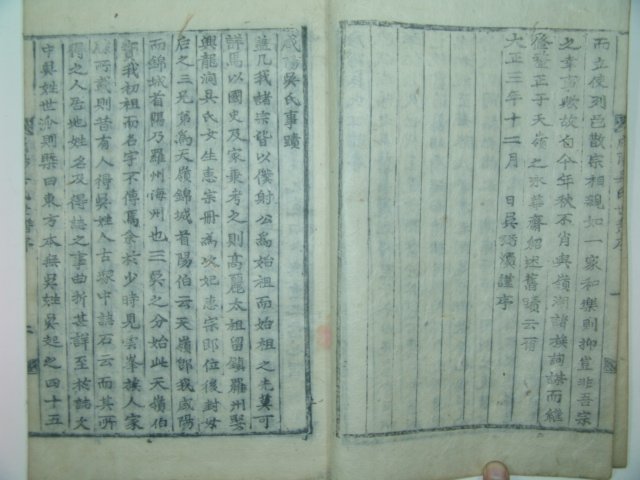 而立使列邑散宗相親如一家和樂則抑豈非吾宗
之幸事歟故自今年秋不肖與嶺湖諸族詢謀而繼
修整正于天嶺之永華齋紹述舊蹟云爾
大正三年十二月 日吳 謹序
咸陽吳氏事蹟
並凡我諸宗皆以僕射公為始祖而始祖之先莫可
詳焉以國史及家乘考之則高麗太祖留鎮羅州娶
興龍洞吳氏女生惠宗冊為次妃惠宗即位後封母
后之三兄弟為天嶺錦城首陽伯云天嶺即我咸陽
而錦城首陽乃羅州海州也三吳之分始此天嶺伯
實我初祖而名字不傳焉余於少時見雲峯族人家
所載則昔有人得吳姓人古冢中誌石云而其所
得之人居地姓名及得誌之事曲折甚詳至於誌文
中吳姓世派則槩曰東方本無吳姓吳起之四十五